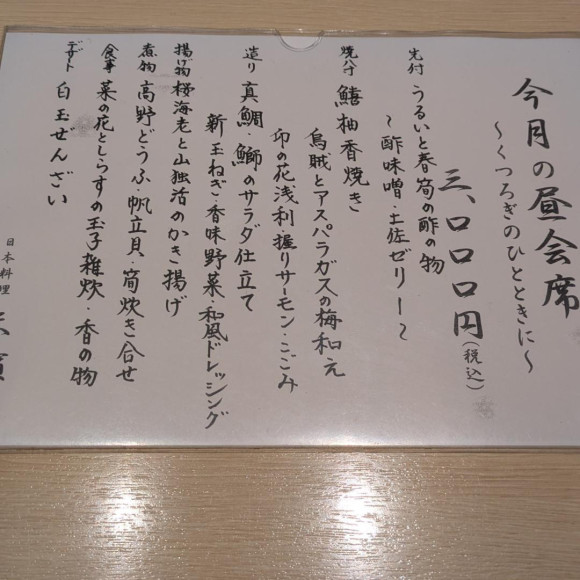 今月の昼会席
～くつろぎのひとときに～
三、〇〇〇円(税込)
先付 うるいと春筍の酢の物
～酢味噌・土佐ゼリー～
焼八寸 鱚柚香焼き
烏賊とアスパラガスの梅和え
卯の花浅利・握りサーモン・こごみ
造り 真鯛・鰤のサラダ仕立て
新玉ねぎ・香味野菜・和風ドレッシング
揚げ物 桜海老と山独活のかき揚げ
煮物 高野どうふ・帆立貝・筍炊き合せ
食事 菜の花としらすの玉子雑炊・香の物
デザート 白玉ぜんざい
日本料理